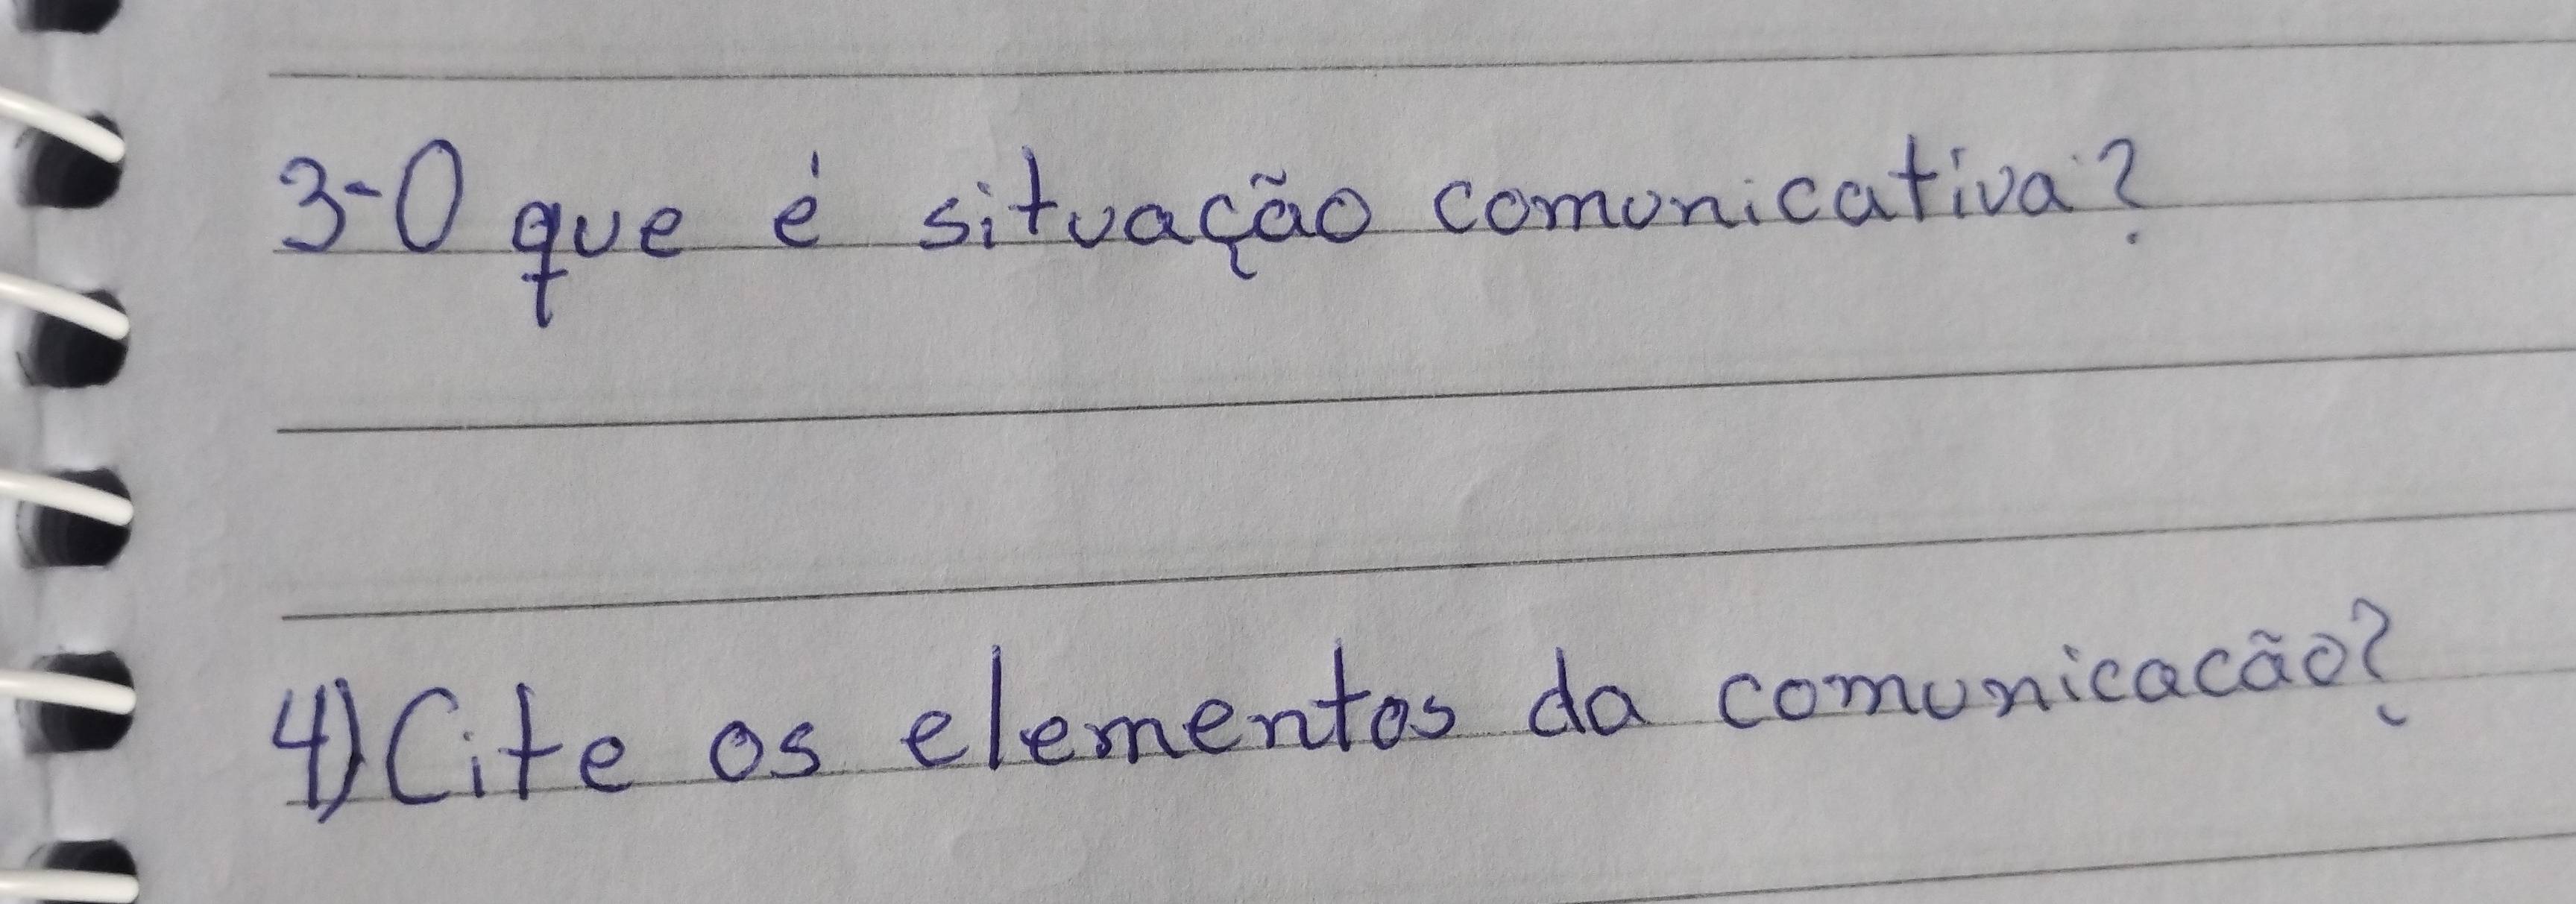 3-O que é situação comunicativa?
4) Cite os elementos da comunicacão?